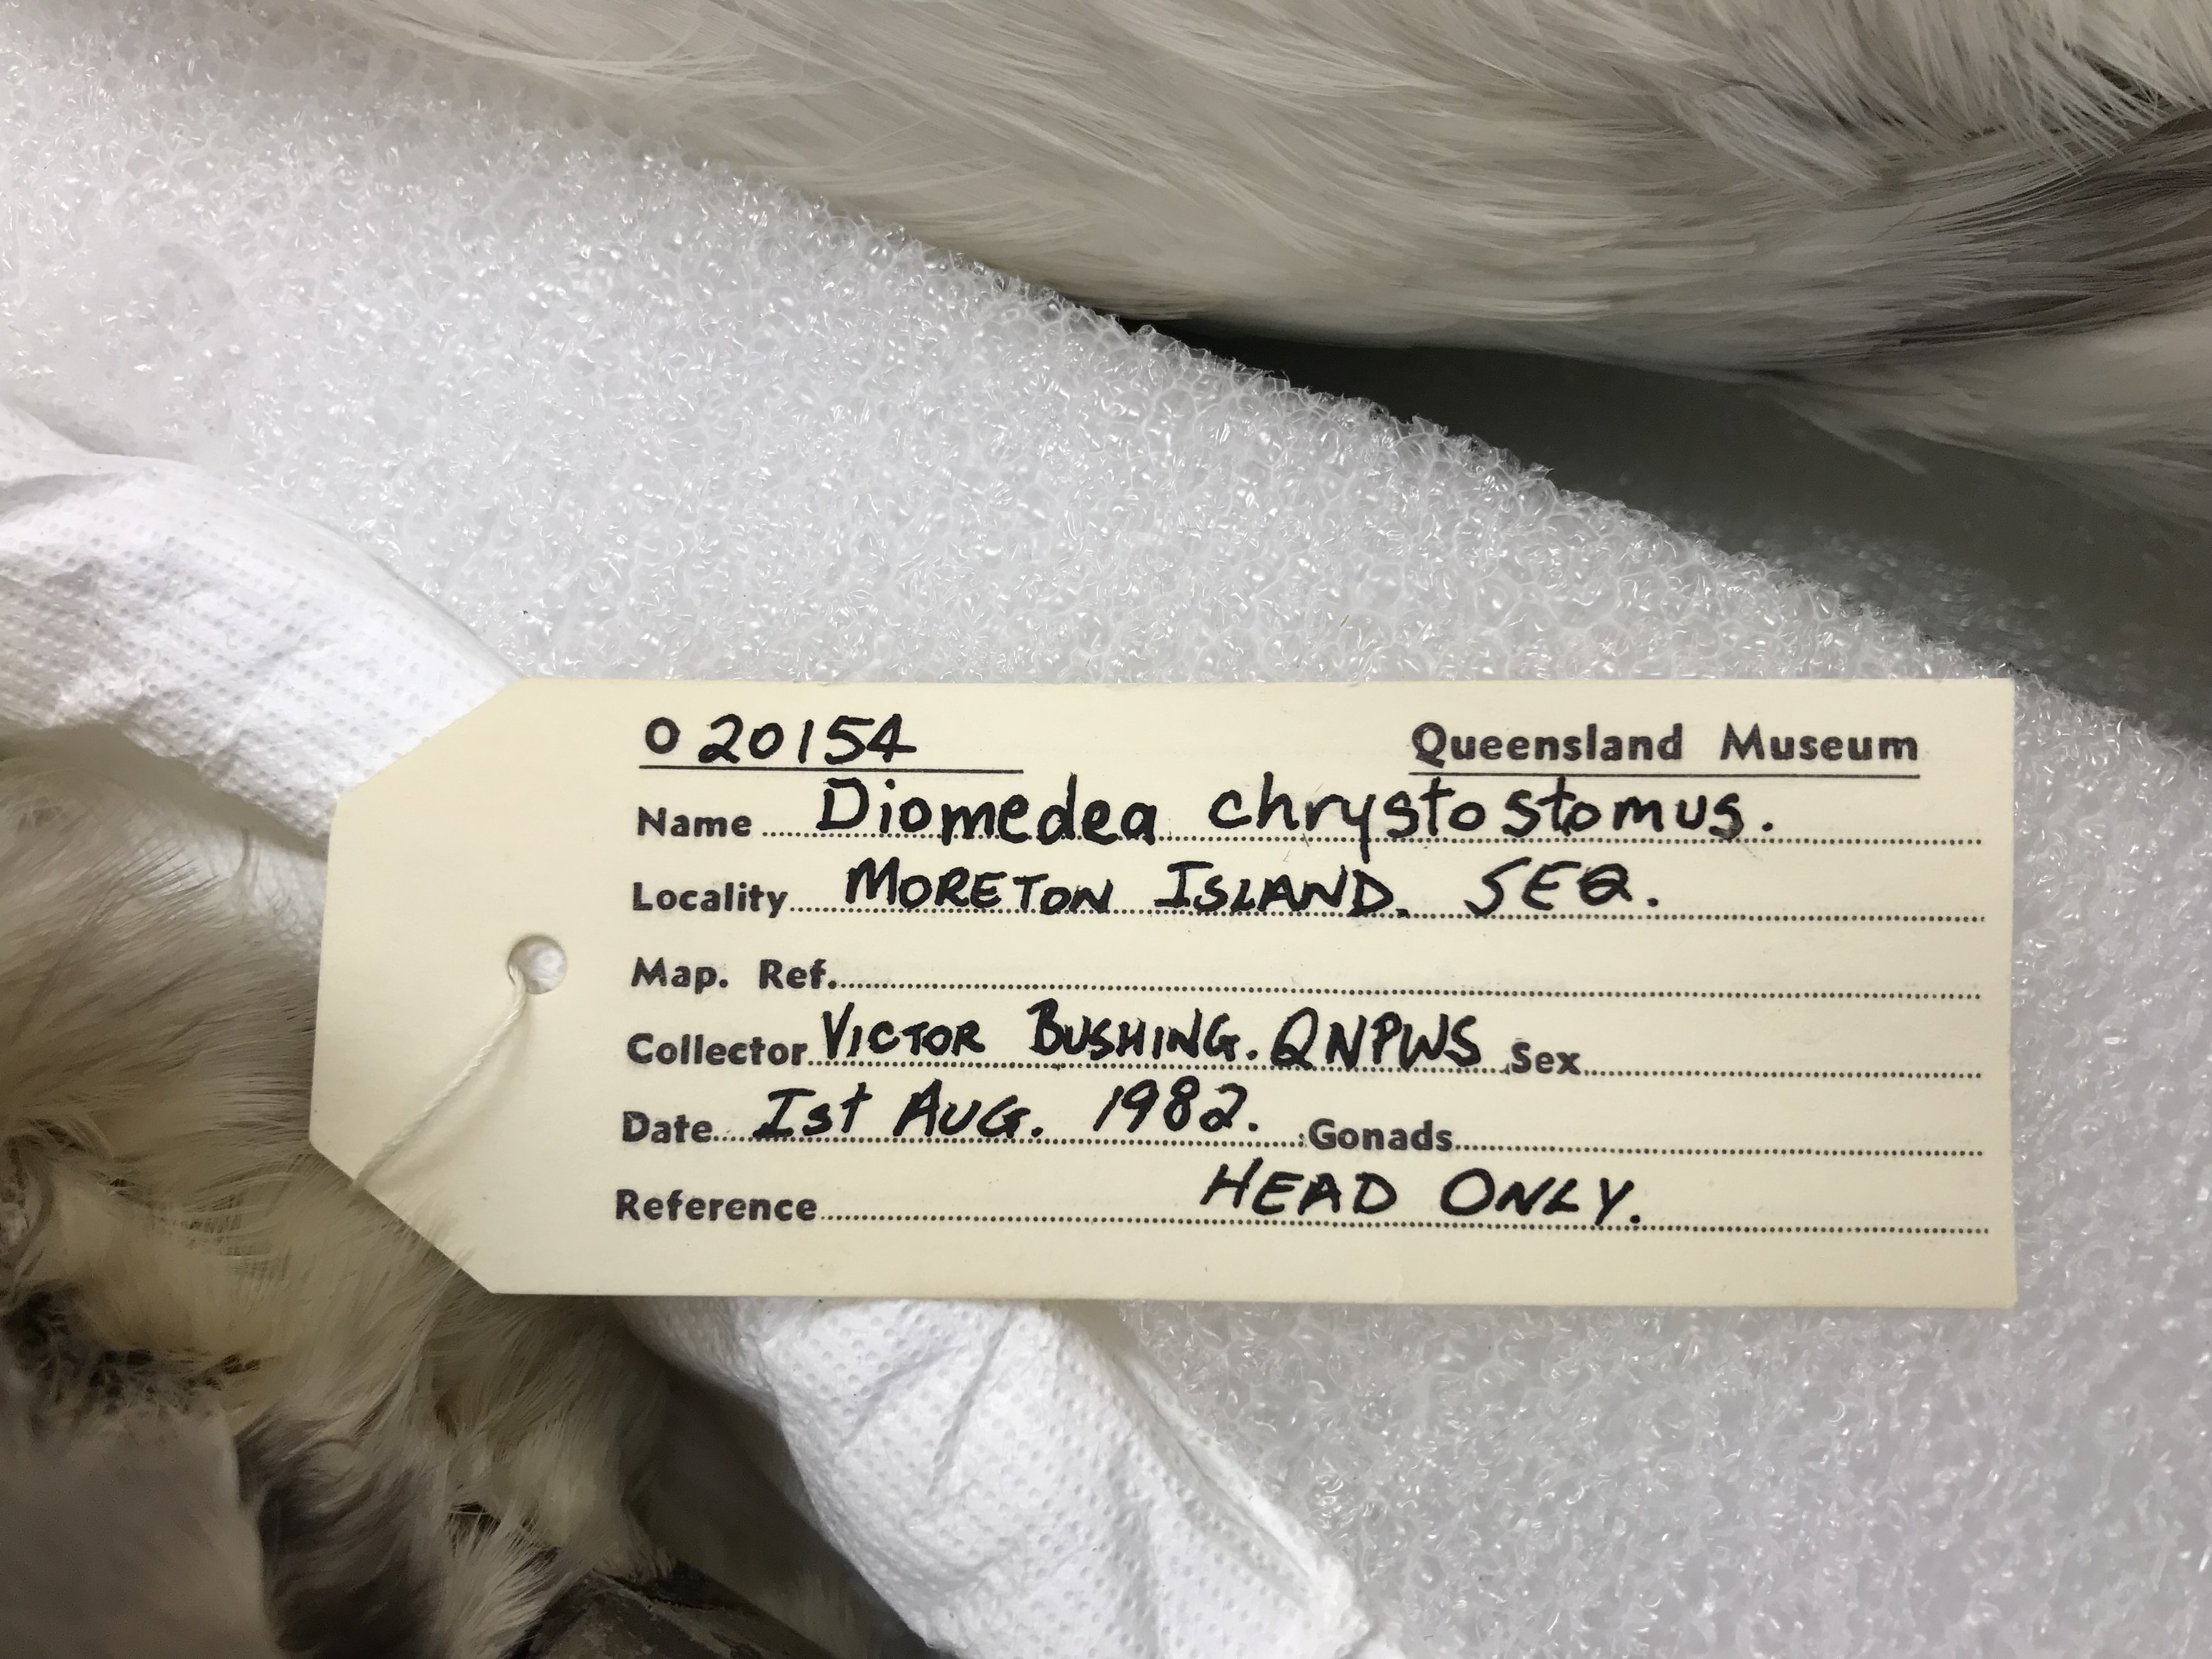 O 20154 Queensland Museum
Name Diomedea chrystostomus.
Locality MORETON ISLAND. SEQ.
Map. Ref.
Collector VICTOR BUSHING. QNPWS Sex
Date 1st AUG. 1982. Gonads
Reference HEAD ONLY.